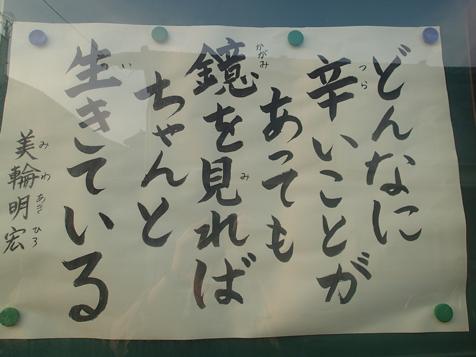 どんなに
辛いことが
あっても
鏡を見れば
ちゃんと
生きている
美輪明宏
つら
かがみ
み
い
みわあきひろ